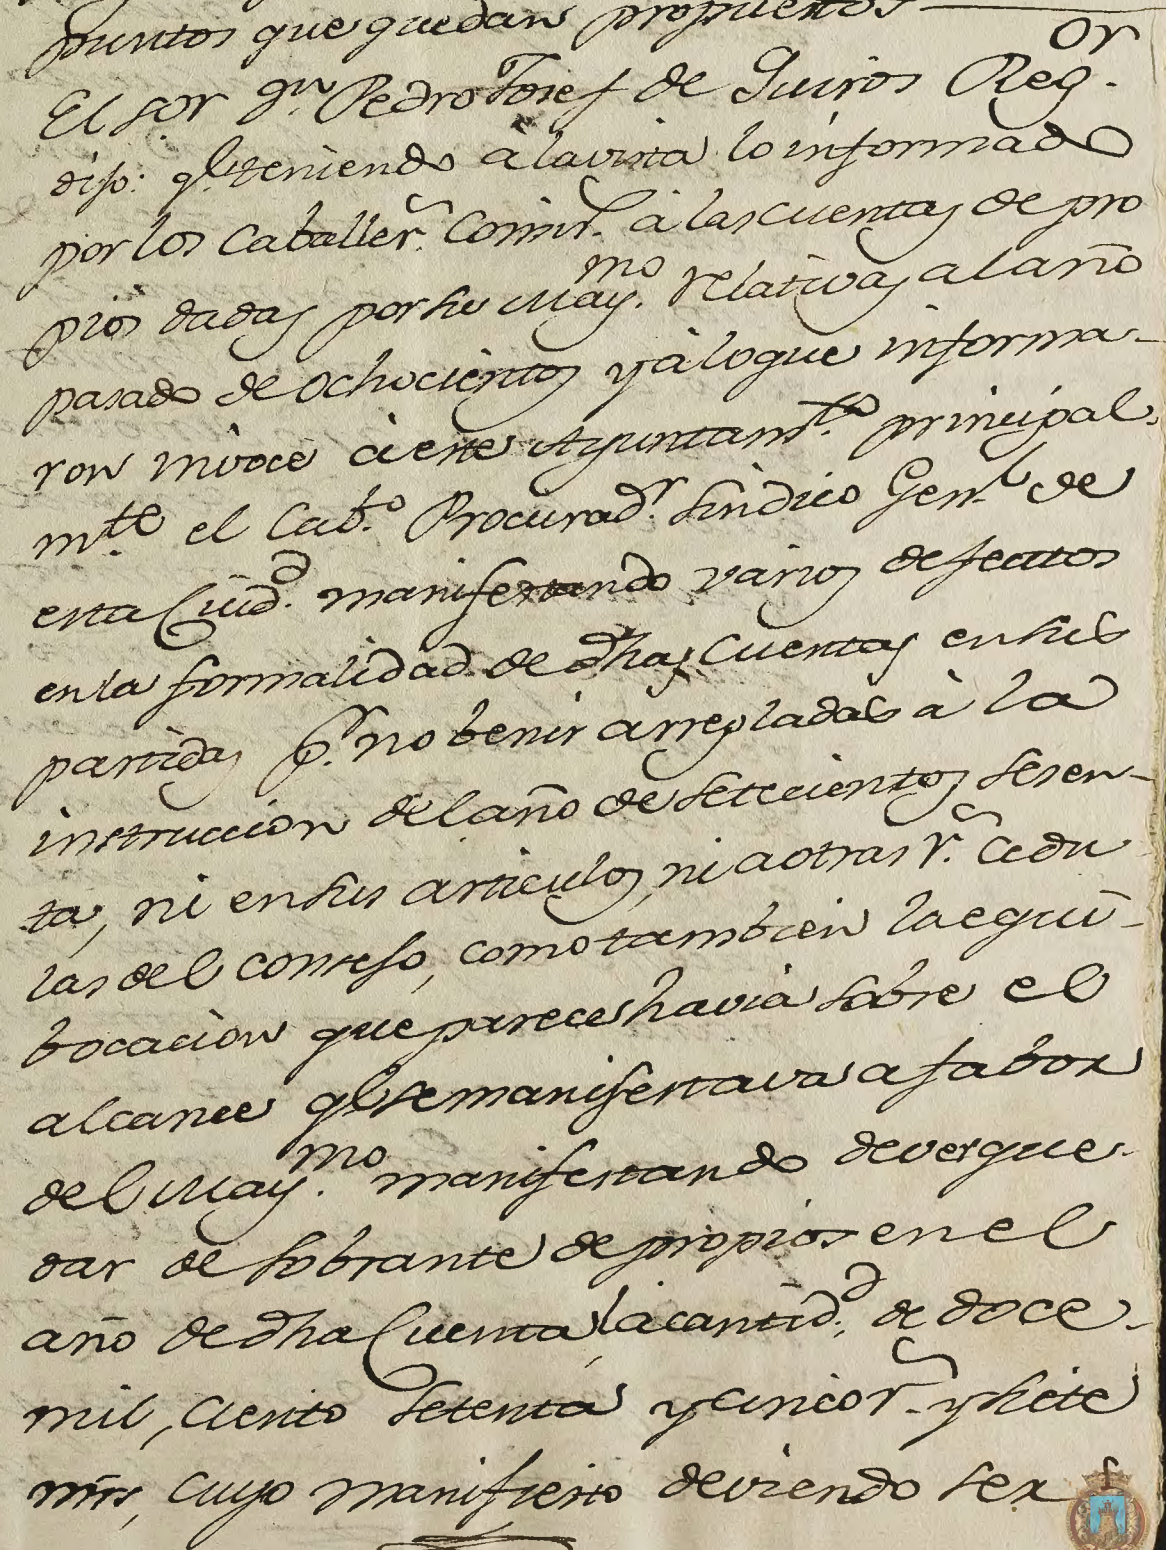 puntos que quedan propuestos
El sor Dn. Pedro Josef de Quiros Regor.
dijo: qe. teniendo à la vista lo informado
por los Caballers. Comirs. à las cuentas de pro
pios dadas por su Maymo. relativas al año
pasado de ochocientos y à lo que informa-
ron invoce à este Ayuntamto. principal-
mte. el Cabo. Procuradr. Sindico Genl. de
esta Ciudd. manifestando varios defectos
en la formalidad de dhas Cuentas en sus
partidas pr. no benir arregladas à la
instruccion del año de setecientos sesen-
ta, ni en sus articulos, ni a otras rs. Cedu
las del consejo, como tambien la equi-
bocacion que parece havia sobre el
alcance qe. se manifestava a fabor
del Maymo. manifestando dever que-
dar de sobrante de propios en el
año de dha Cuenta, la cantidd. de doce-
mil, ciento setenta y cinco rs. y siete
mrs, cuyo manifiesto deviendo ser